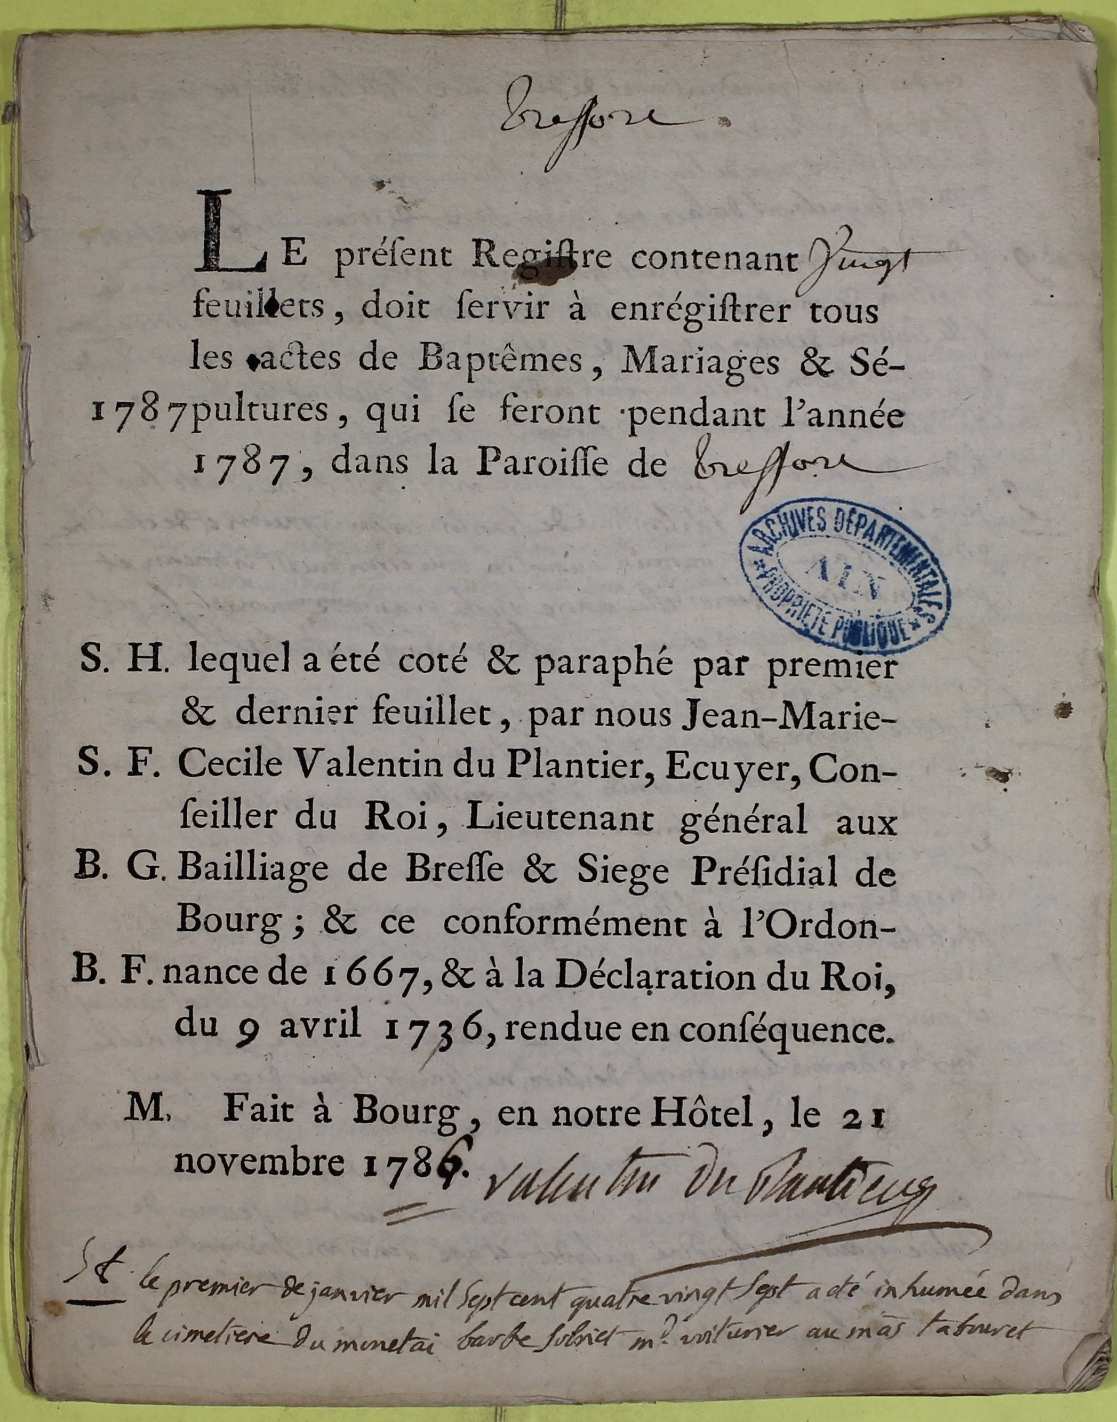 Tressore
LE préſent Regiſtre contenant Vingt
feuillets, doit ſervir à enrégiſtrer tous
les actes de Baptêmes, Mariages & Sé-
1787 pultures, qui ſe feront pendant l'année
1787, dans la Paroiſſe de Tressore
ARCHIVES DÉPARTEMENTALES
AIN
PROPRIÉTÉ PUBLIQUE
S. H. lequel a été coté & paraphé par premier
& dernier feuillet, par nous Jean-Marie-
S. F. Cecile Valentin du Plantier, Ecuyer, Con-
ſeiller du Roi, Lieutenant général aux
B. G. Bailliage de Breſſe & Siege Préſidial de
Bourg; & ce conformément à l'Ordon-
B. F. nance de 1667, & à la Déclaration du Roi,
du 9 avril 1736, rendue en conſéquence.
M. Fait à Bourg, en notre Hôtel, le 21
novembre 1786. Valentin Du Plantier
le premier de janvier mil sept cent quatre vingt sept a été inhumée dans
le cimetiere du barbe md voiturier au mas tabouret